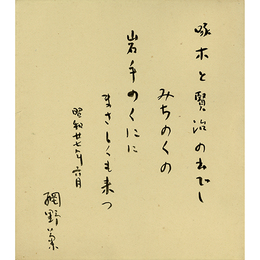 啄木と賢治のお国し
みちのくの
岩手のくにに
まさしくも来つ
昭和廿七年六月
網野菊